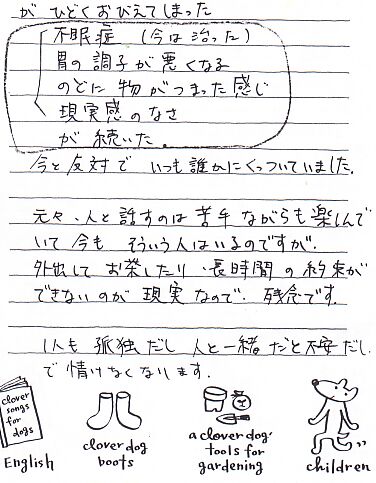 が ひどくおびえてしまった
不眠症 (今は治った)
胃の調子が悪くなる
のどに物がつまった感じ
現実感のなさ
が続いた。
今と反対で いつも誰かにくっついていました。
元々、人と話すのは苦手ながらも楽しんで
いて今も そういう人はいるのですが、
外出してお茶したり、長時間の約束が
できないのが現実なので、残念です。
1人も孤独だし人と一緒だと不安だし
で情けなくなります。
clover
songs
for
dogs
English
clover dog
boots
a clover dog'
tools for
gardening
children